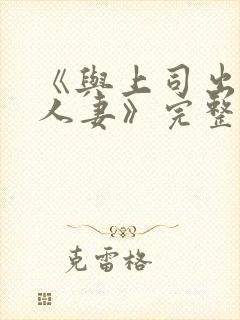 《與上司出
人妻》完整
克雷格